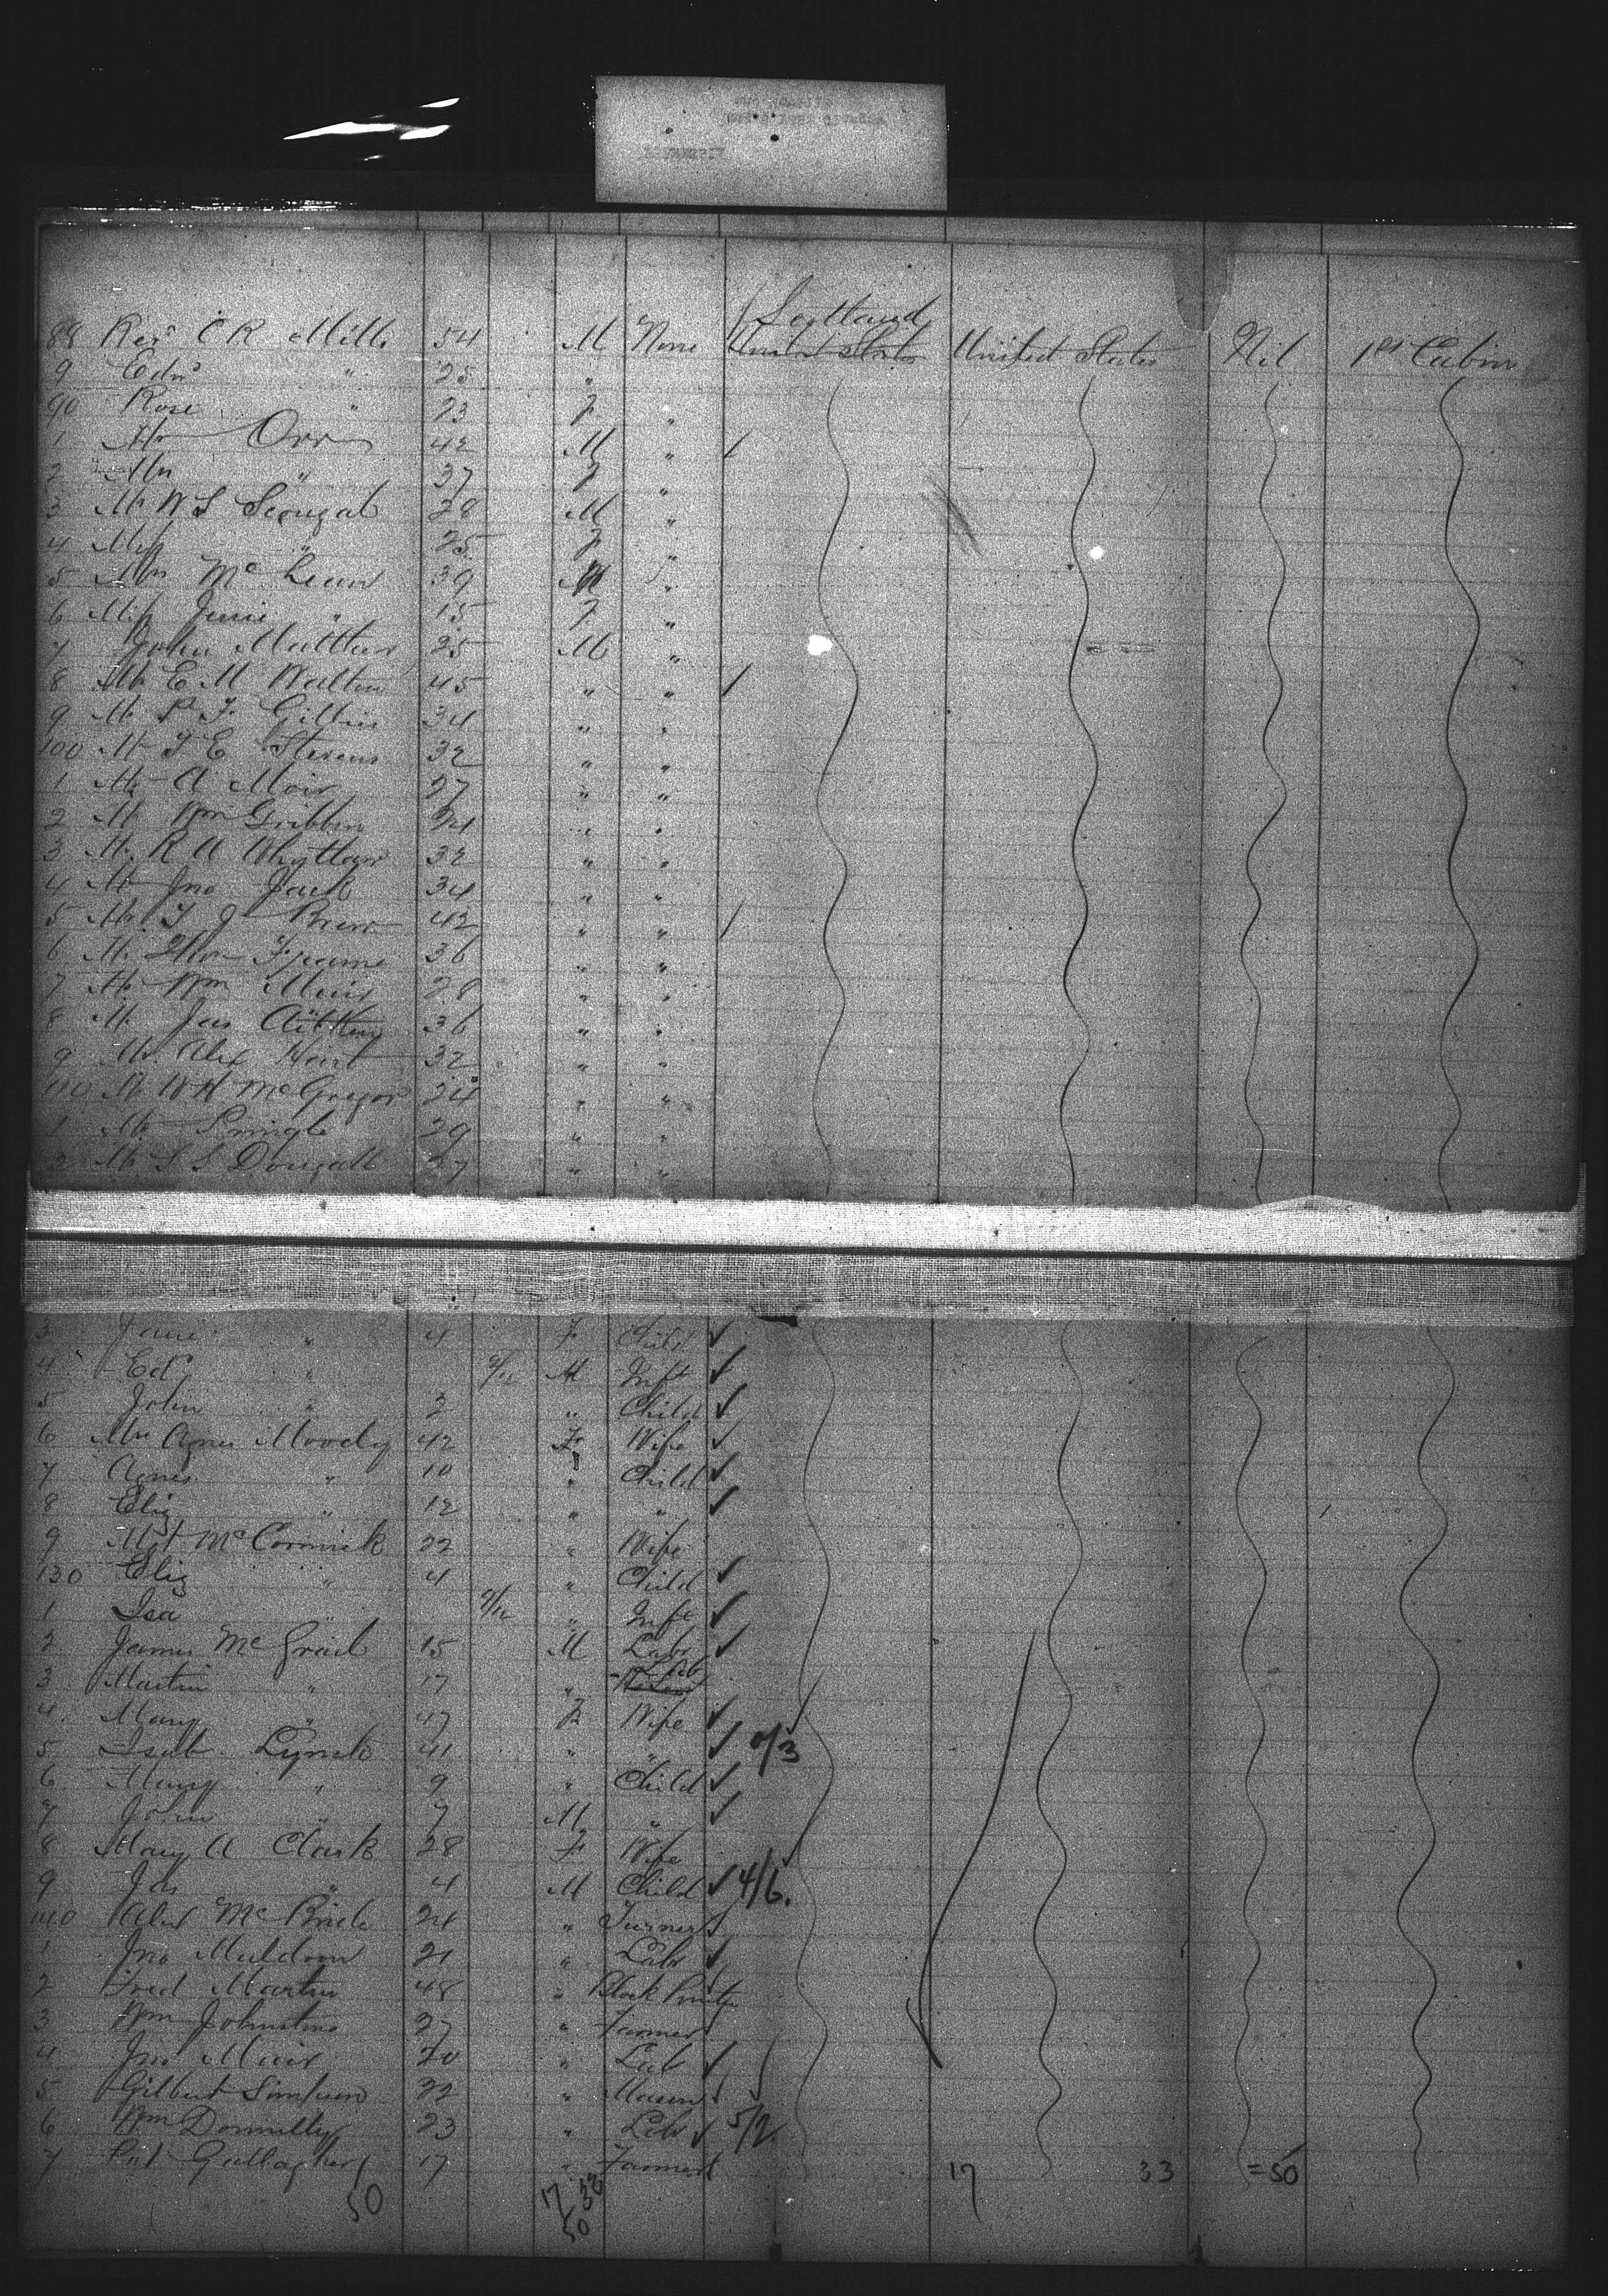 Scotland
88 Rev C R Mills 54 M None United States United States Nil 1st Cabin
9 Edw " 25 "
90 Rose " 23 F "
1 Mr Orr 42 M "
2 Mrs " 37 F "
3 Mr W S Scougal 28 M "
4 Miss " 25 F "
5 Mrs McLean 39 M "
6 Miss Jessie " 15 F "
7 John Matthew 25 M "
8 Mr E M Walton 45 " "
9 Mr P F Gillies 34 " "
100 Mr T E Stevens 32 " "
1 Mr A Moir 27 " "
2 Mr Wm Gribbin 24 " "
3 Mr R A Whytlaw 32 " "
4 Mr Jno Jack 34 " "
5 Mr T J Brew 42 " "
6 Mr Frame 36 " "
7 Mr Wm Muir 28 " "
8 Mr Jas Aitken 36 " "
9 Mr Alex 32 " "
110 Mr W H McGregor 34 " "
1 Mr Pringle 29 " "
2 Mr S S Dougall 27 " "
3 Jane " 4 F Child
4 Ed " 9/12 M Inft
5 John " 2 " Child
6 Mrs Agnes Moody 42 F Wife
7 Agnes " 10 " Child
8 Eliz " 12 " "
9 Mgt McCormick 22 " Wife
130 Eliz " 4 " Child
1 Isa " 9/12 " Inft
2 James McGrail 15 M Labr
3 Martin " 17 " Lab
4 Mary " 47 F Wife
5 Isab Lynch 41 " " 0/3
6 Mary " 9 " Child
7 John " 7 M "
8 Mary A Clark 28 F Wife
9 Jas " 4 M Child 4/6.
140 Alex McBride 24 " Turner
1 Jno Muldoon 21 " Labr
2 Fred Martin 48 " Block Printer
3 Wm Johnstone 27 " Farmer
4 Jno Muir 20 " Lab
5 Gilbert Simpson 22 " Mason
6 Wm Donnelly 23 " Labr 5/2
7 Pat Gallagher 17 " Farmer 17 33 = 50
50 17 33
50